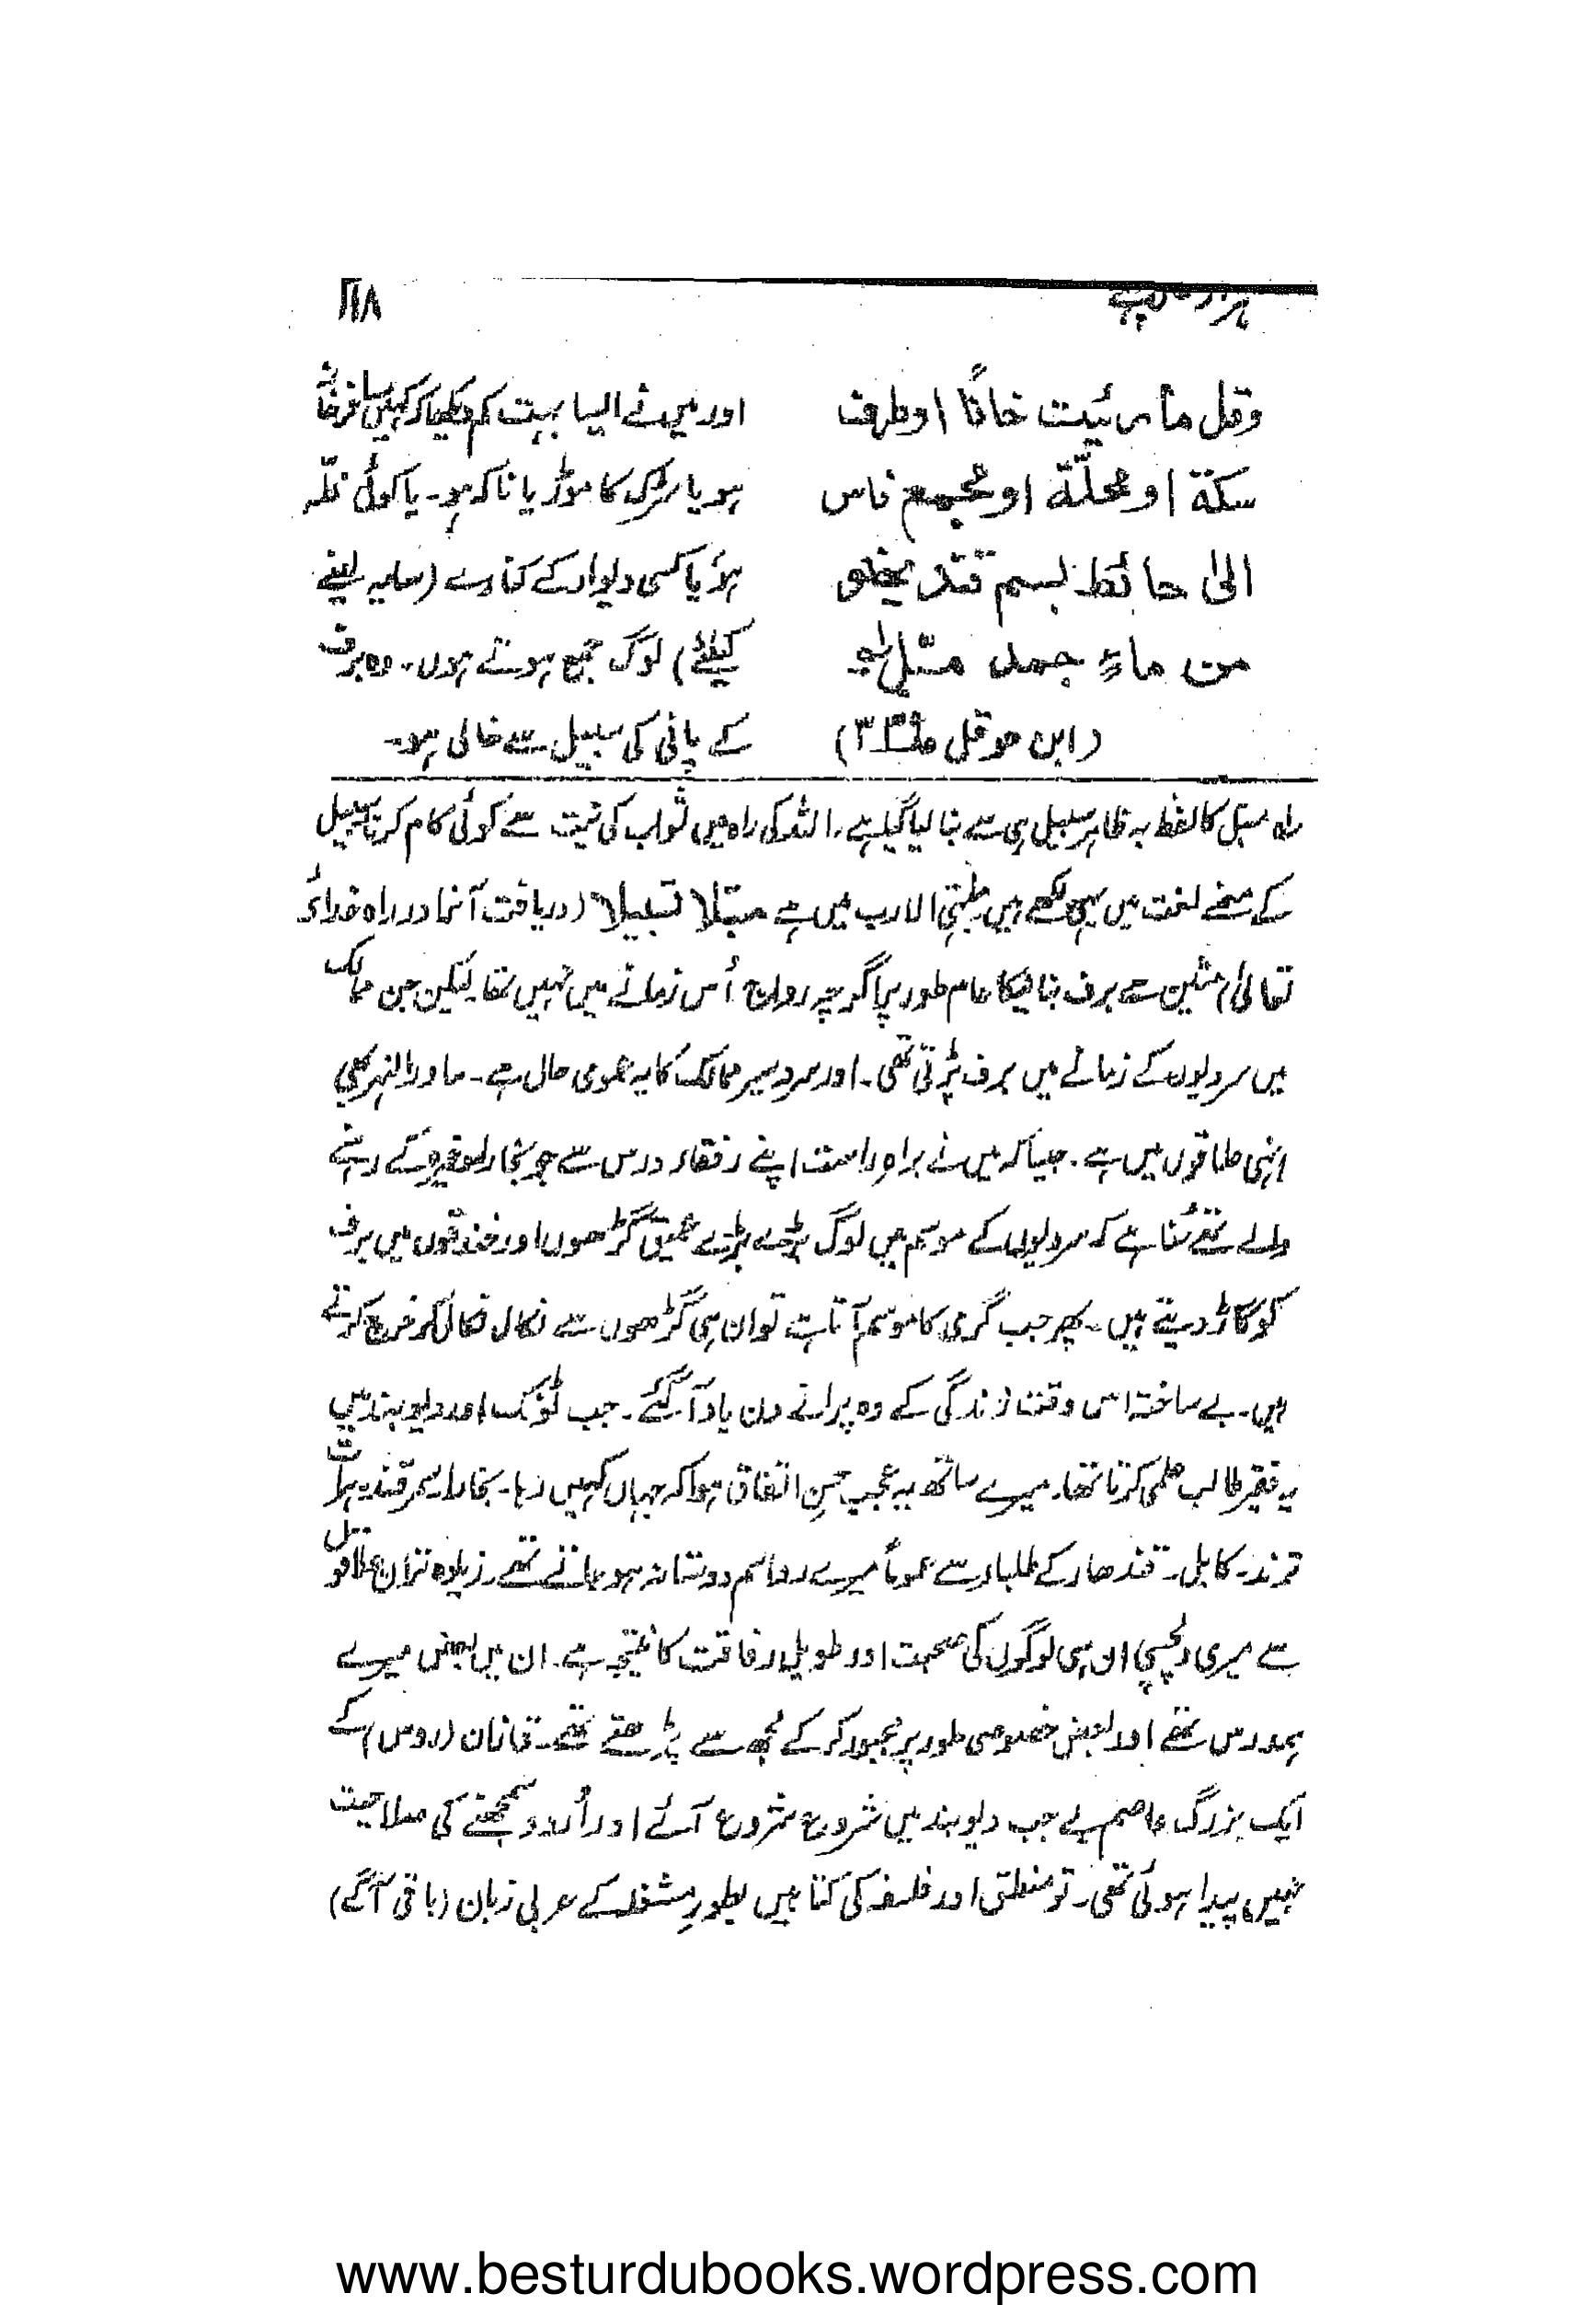 ہزار سال پہلے
۲۱۸
وقل ما رئیت خانًا او طرف
سکة او محلّة او مجمع ناس
الیٰ حائط لیسم قتد یخلو
من ماءٍ جمد مسبّل
(ابن حوقل
اور میں نے ایسا بہت کم دیکھا کہ کہیں مسافرخانہ
ہو یا سڑک کا موڑ یا ناکہ ہو۔ یا کوئی محلہ
ہو یا کسی دیوار کے کنارے (سایہ لینے
کیلئے) لوگ جمع ہوتے ہوں۔ وہ برف
کے پانی کی سبیل سے خالی ہو۔
راہ سبل کا لفظ بہ ظاہر سبیل ہی سے بنا لیا گیا ہے۔ اللہ کی راہ میں ثواب کی نیت سے کوئی کام کرنا سبیل
کے معنے لغت میں یہی لکھے ہیں منتہی الارب میں ہے سبّلا تسبیلا (دریافت آنما در راہ خدائے
تعالیٰ) مشین سے برف بنانیکا عام طور پر اگرچہ رواج اُس زمانے میں نہیں تھا لیکن جن ممالک
میں سردیوں کے زمانے میں برف پڑتی تھی۔ اور سرد سیر ممالک کا یہ عمومی حال ہے۔ ماوراالنہر بھی
انہی علاقوں میں ہے۔ جیسا کہ میں نے براہِ راست اپنے رفقاء درس سے جو بخارا وغیرہ کے رہنے
والے تھے سُنا ہے کہ سردیوں کے موسم میں لوگ بڑے بڑے عمیق گڑھوں اور خندقوں میں برف
کو گاڑ دیتے ہیں۔ پھر جب گرمی کا موسم آتا ہے تو ان ہی گڑھوں سے نکال نکال کر خرچ کرتے
ہیں۔ بے ساختہ اس وقت زندگی کے وہ پرانے دن یاد آ گئے۔ جب ٹونک اور دیوبند میں
یہ فقیر طالب علمی کرتا تھا۔ میرے ساتھ یہ عجیب حسنِ اتفاق ہوا کہ جہاں کہیں رہا۔ بخارا، سمرقند، ہرات
ترمذ۔ کابل۔ قندھار کے طلباء سے عموماً میرے مراسم دوستانہ ہو جاتے تھے۔ زیادہ تر ان علاقوں
سے میری دلچسپی ان ہی لوگوں کی صحبت اور طویل رفاقت کا نتیجہ ہے۔ ان میں بعض میرے
ہمدرس تھے اور بعض خصوصی طور پر مجبور کر کے مجھ سے پڑھتے تھے۔ قازان (روس) کے
ایک بزرگ عاصم بے جب دیوبند میں شروع شروع آئے اور اُردو سمجھنے کی صلاحیت
نہیں پیدا ہوئی تھی۔ تو منطق اور فلسفہ کی کتابیں بطورِ مشغلہ کے عربی زبان (باقی آگے)
www.besturdubooks.wordpress.com